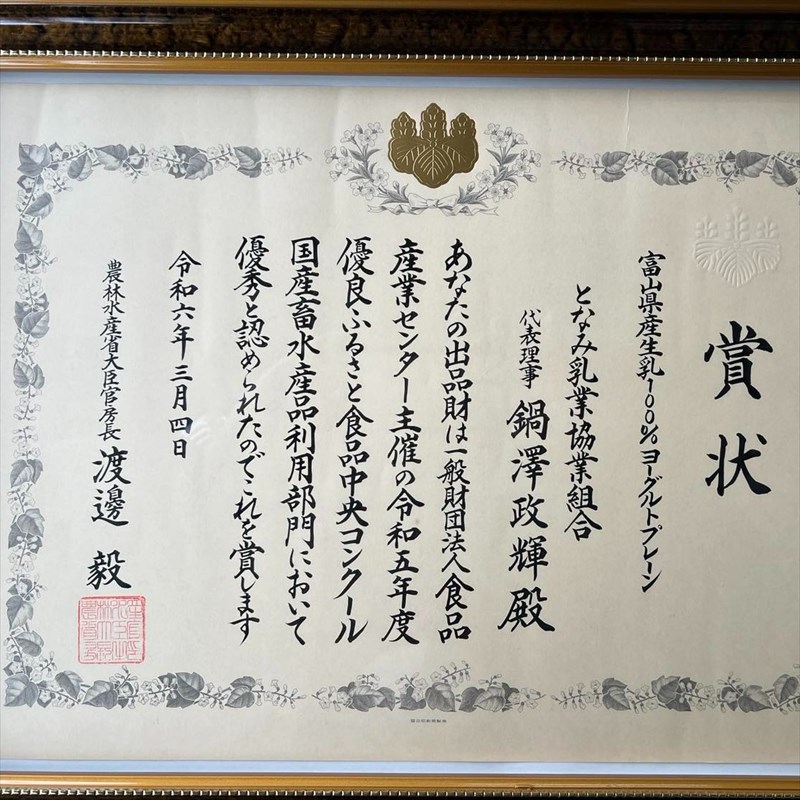 賞状
富山県産生乳100%ヨーグルトプレーン
となみ乳業協業組合
代表理事 鍋澤政輝殿
あなたの出品財は一般財団法人食品
産業センター主催の令和五年度
優良ふるさと食品中央コンクール
国産畜水産品利用部門において
優秀と認められたのでこれを賞します
令和六年三月四日
農林水産省大臣官房長 渡邊 毅